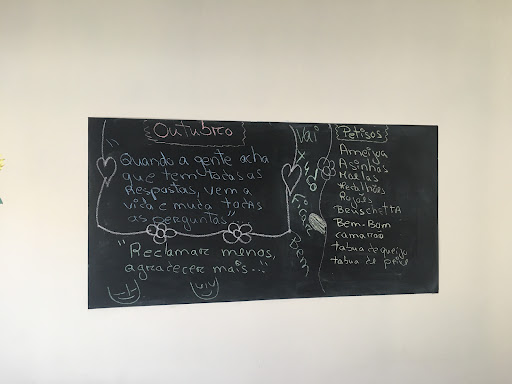 Outubro
"Quando a gente acha
que tem todas as
respostas, vem a
vida e muda todas
as perguntas"...
"Reclamar menos,
agradecer mais..."
Vai
Ficar
Bem
Petiscos
Ameixa
Asinhas
Medalhões
Bruschetta
Bem-Bom
camarão
tabua de queijo
tabua de